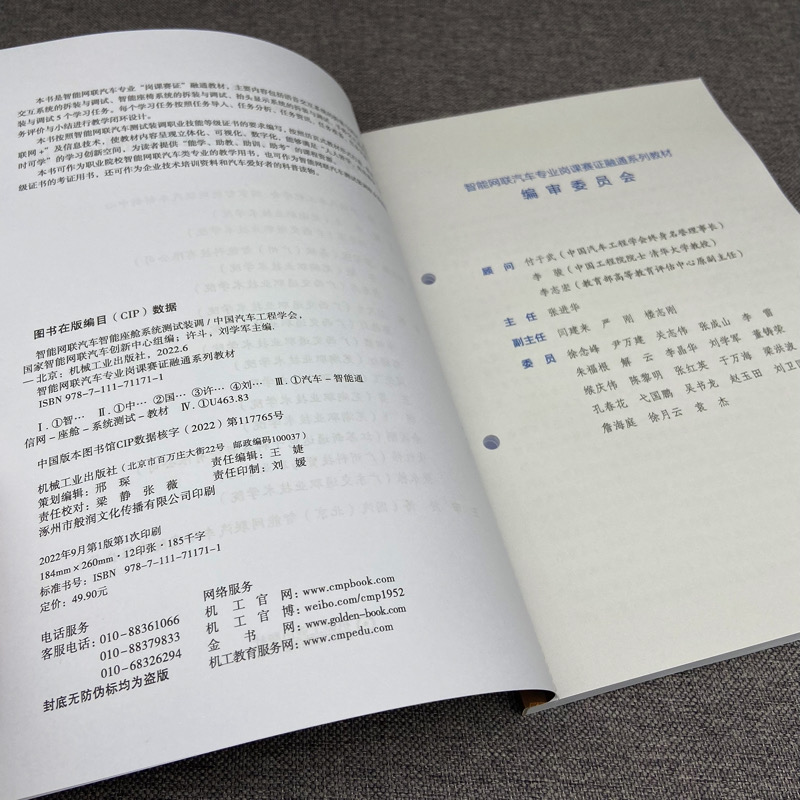 本书是智能网联汽车专业“岗课赛证”融通教材，主要内容包括语音交互系
交互系统的拆装与调试、智能座椅系统的拆装与调试、抬头显示系统的拆装与调试
装与调试5个学习任务。每个学习任务按照任务导入、任务分析、任务资讯、任务
务评价与小结进行教学闭环设计。
本书按照智能网联汽车测试装调职业技能等级证书的要求编写，按照
联网+”及信息技术，使教材内容呈现立体化、可视化、数字化，能够满足“人人皆学、
时可学”的学习创新空间，为读者提供“能学、助教、助训、助考”的课程资源。
本书可作为职业院校智能网联汽车类专业的教学用书，也可作为智能网联汽车测试装调
级证书的考证用书，还可作为企业技术培训资料和汽车爱好者的科普读物。
图书在版编目（CIP）数据
智能网联汽车智能座舱系统测试装调/中国汽车工程学会，
国家智能网联汽车创新中心组编；许斗，刘学军主编.
—北京：机械工业出版社，2022.6
智能网联汽车专业岗课赛证融通系列教材
ISBN 978-7-111-71171-1
Ⅰ.①智… Ⅱ.①中… ②国… ③许… ④刘… Ⅲ.①汽车－智能通
信网－座舱－系统测试－教材 Ⅳ.①U463.83
中国版本图书馆CIP数据核字（2022）第117765号
机械工业出版社（北京市百万庄大街22号 邮政编码100037）
策划编辑：邢 琛 责任编辑：王 婕
责任校对：梁 静 张 薇 责任印制：刘 媛
涿州市般润文化传播有限公司印刷
2022年9月第1版第1次印刷
184mm×260mm·12印张·185千字
标准书号：ISBN 978-7-111-71171-1
定价：49.90元
电话服务
客服电话：010-88361066
010-88379833
010-68326294
封底无防伪标均为盗版
网络服务
机 工 官 网：www.cmpbook.com
机 工 官 博：weibo.com/cmp1952
金 书 网：www.golden-book.com
机工教育服务网：www.cmpedu.com
智能网联汽车专业岗课赛证融通系列教材
编审委员会
顾 问 付于武（中国汽车工程学会终身名誉理事长）
李 骏（中国工程院院士 清华大学教授）
李志宏（教育部高等教育评估中心原副主任）
主 任 张进华
副主任 闫建来 严 刚 楼志刚
委 员 徐念峰 尹万建 关志伟 张成山 李 雷
朱福根 解 云 李晶华 刘学军 董铸荣
候庆伟 陈黎明 张红英 于万海 梁洪波
孔春花 弋国鹏 吴书龙 赵玉田 刘卫国
詹海庭 徐月云 袁 杰